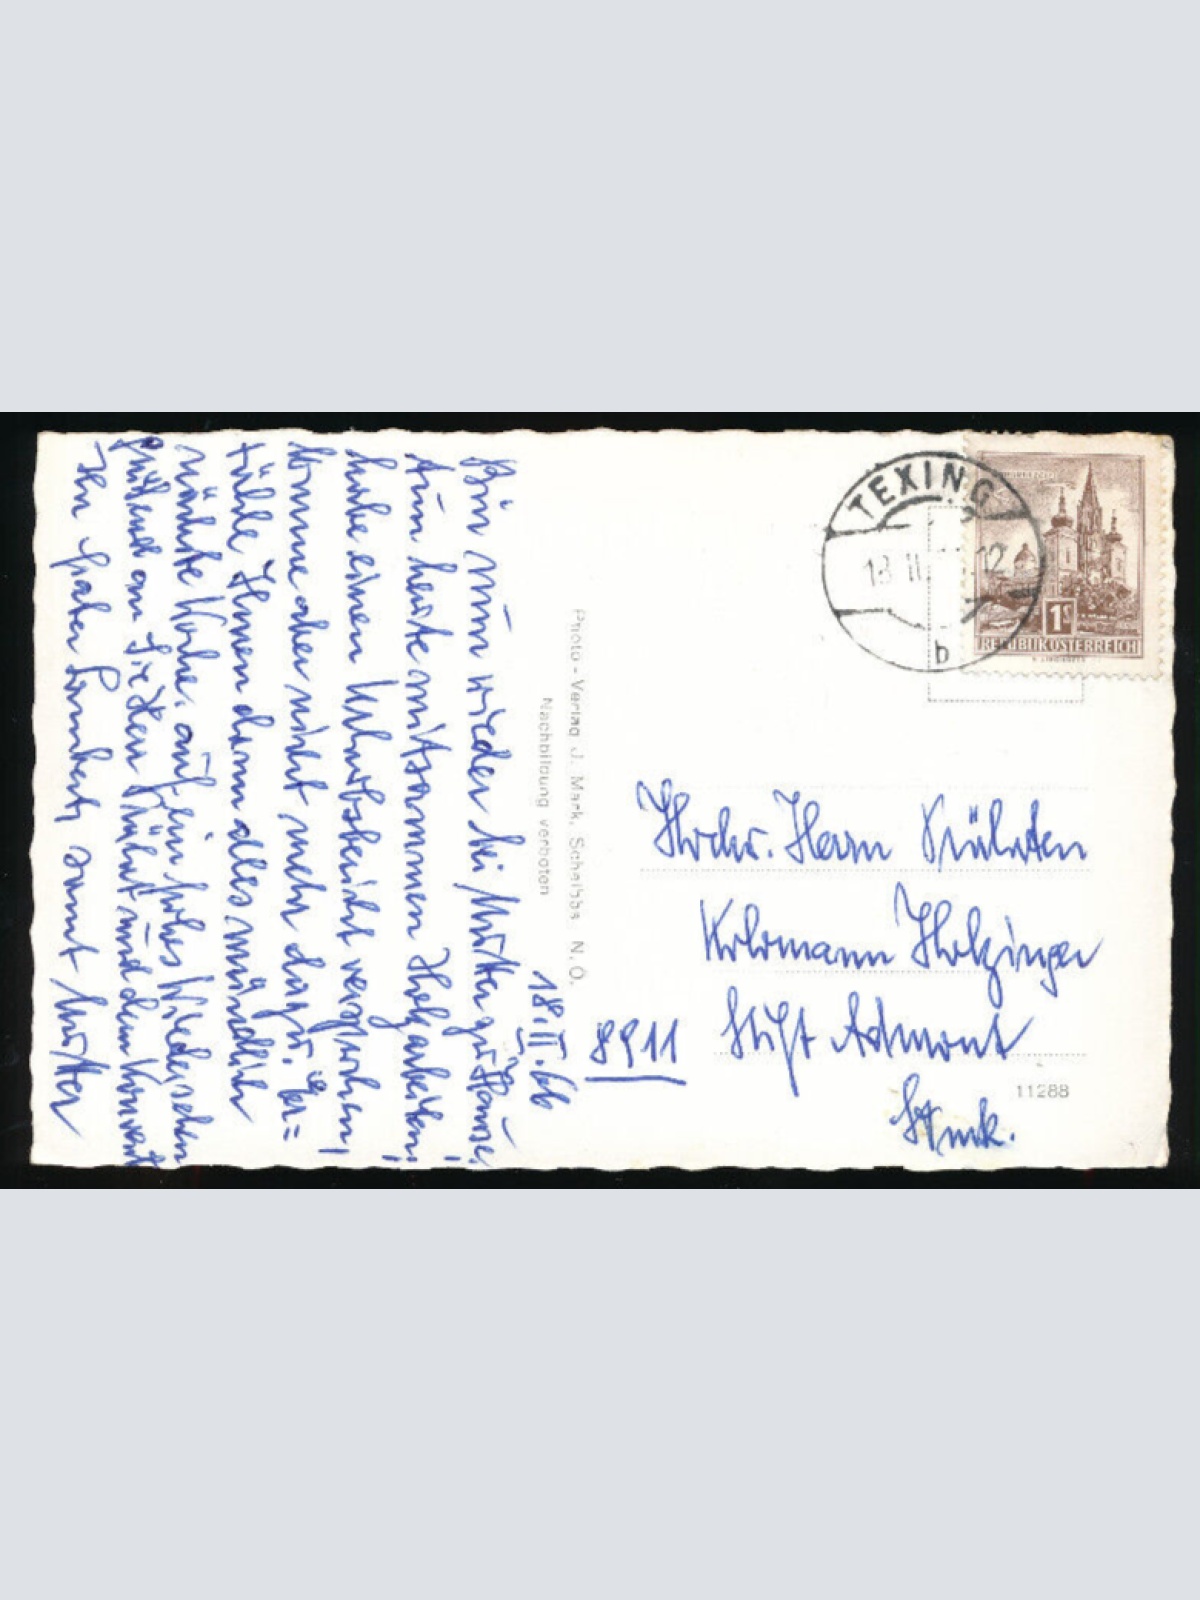 18.II.66
Bin nun wieder bei Mutter zu Hause.
Tun heute mitsammen Holz arbeiten!
habe einen Urlaubsbericht versprochen,
komme aber nicht mehr dazu. Er=
zähle Ihnen dann alles mündlich
nächste Woche. Auf ein frohes Wiedersehen
grüßend an Sie Herr und dem Konvent
Ihr Frater Lambert samt Mutter
Photo-Verlag J. Mark, Scheibbs, N. Ö.
Nachbildung verboten
TEXING
18 II 12
b
1S
REPUBLIK ÖSTERREICH
Hochw. Herrn
Kolomann Holzinger
8911 Stift Admont
Stmk.
11288